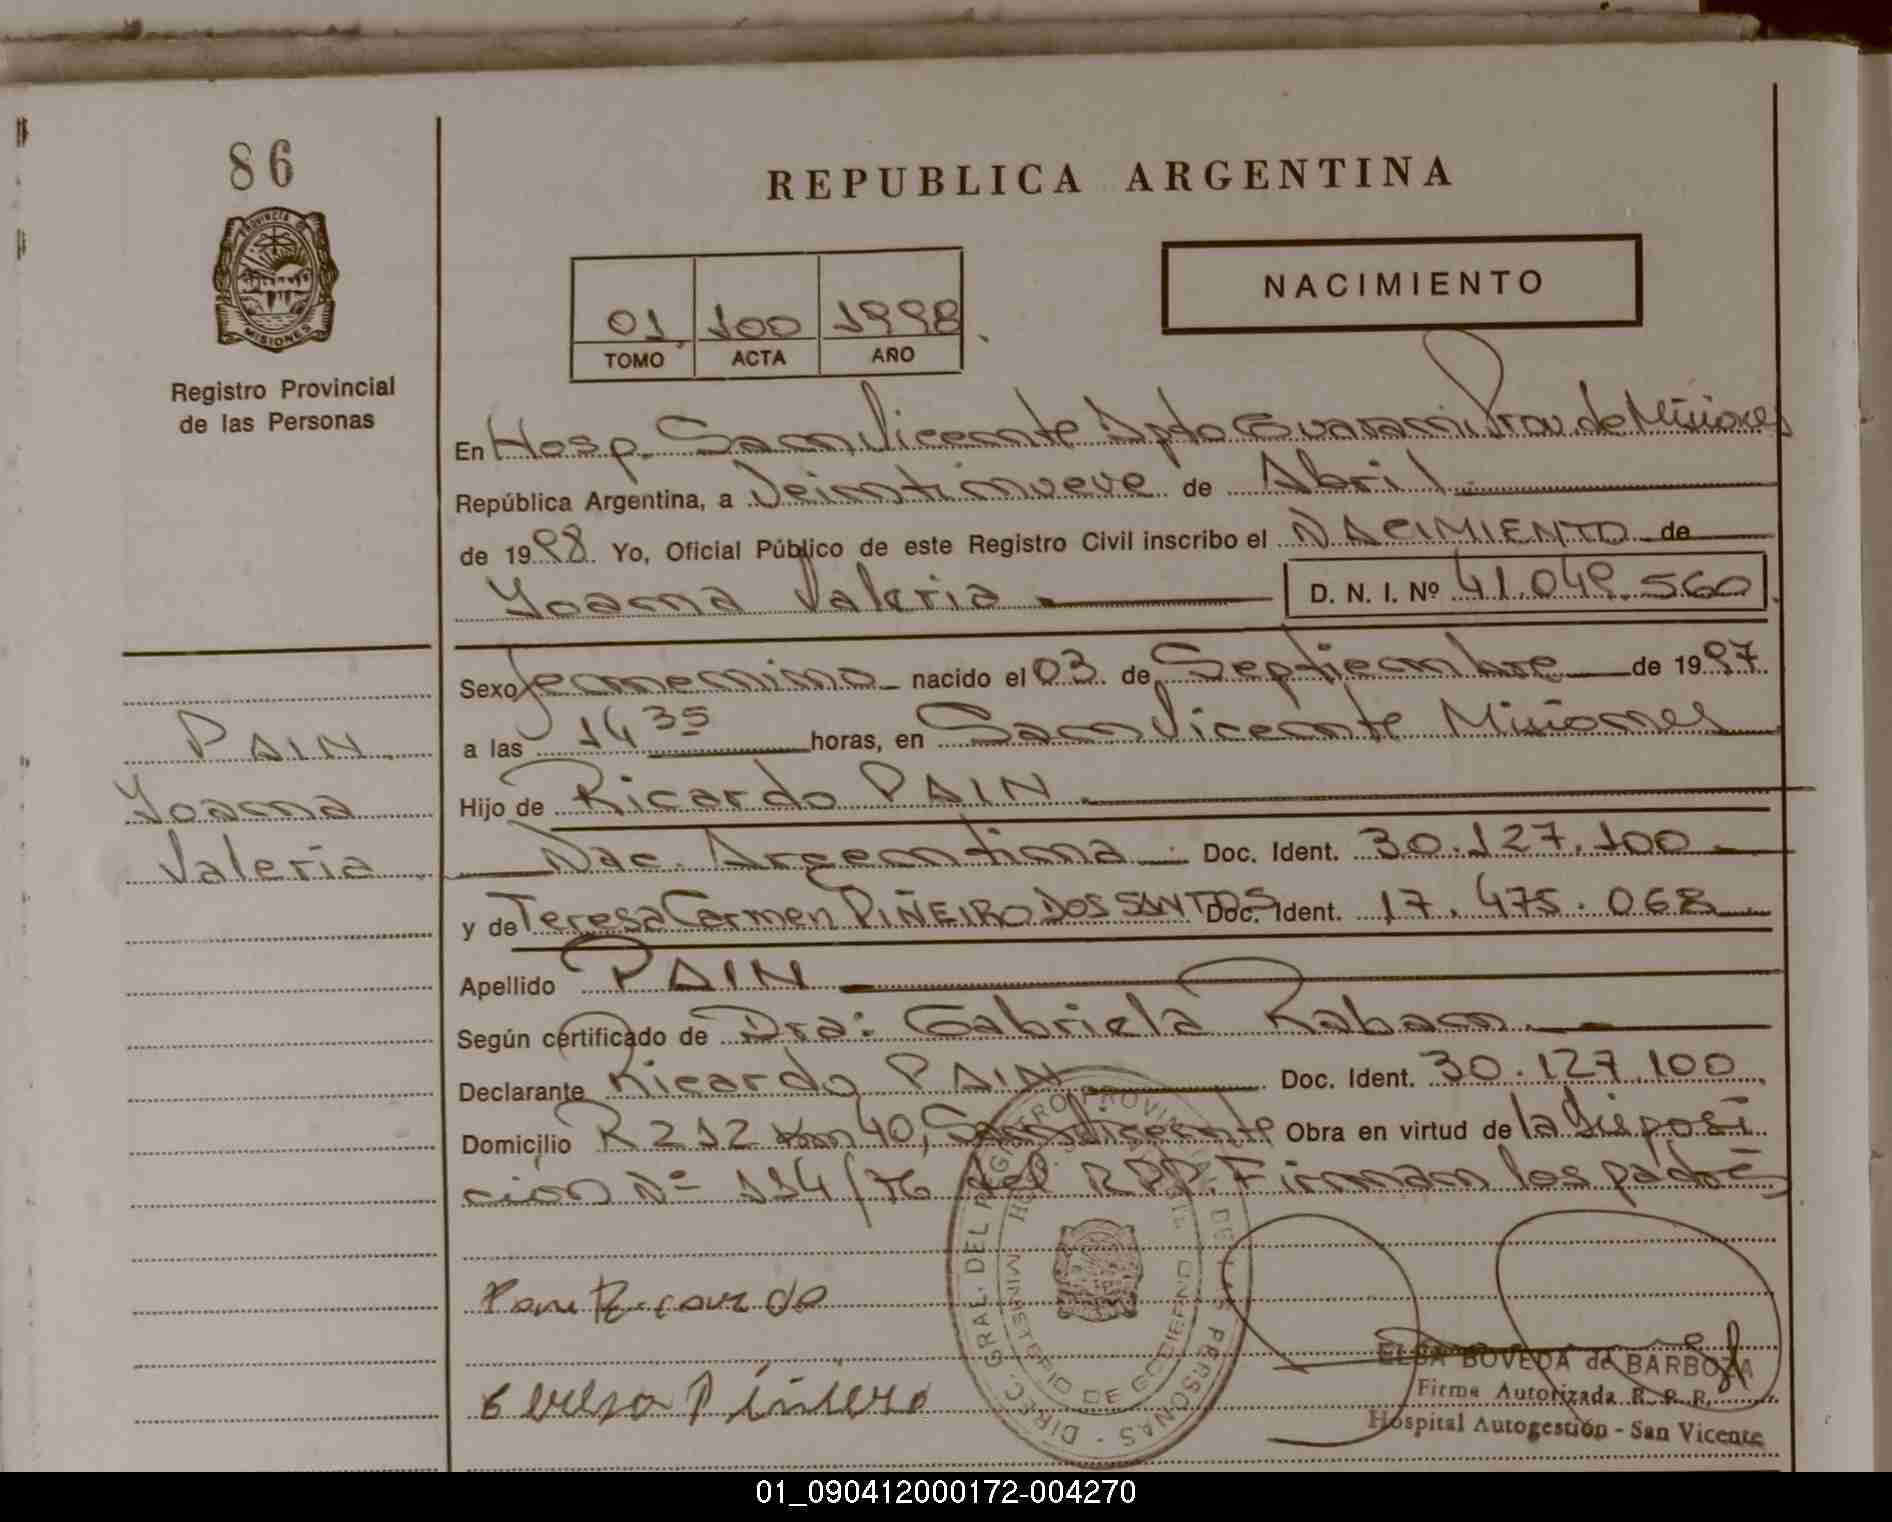 86
PROVINCIA D
MISIONES
Registro Provincial
de las Personas
REPUBLICA ARGENTINA
NACIMIENTO
01 100 1998
TOMO ACTA AÑO
En Hosp. San Vicente Dpto Guarani Prov. de Misiones
República Argentina, a Veintinueve de Abril
de 1998 Yo, Oficial Público de este Registro Civil inscribo el NACIMIENTO de
Yoana Valeria D. N. I. Nº 41.049.560
Sexo femenino nacido el 03 de Septiembre de 1997
a las 14 35 horas, en San Vicente Misiones
PAIN
Hijo de Ricardo PAIN
Yoana
Nac. Argentina Doc. Ident. 30.127.100
Valeria
y de Teresa Carmen PIÑEIRO DOS SANTOS Doc. Ident. 17.475.068
Apellido PAIN
Según certificado de Dra: Gabriela Raban
Declarante Ricardo PAIN Doc. Ident. 30.127.100
Domicilio R 212 Km 40, San Vicente Obra en virtud de la Disposi
ción Nº 114/76 del RPP. Firman los padres
DIREC. GRAL. DEL REGISTRO PROVINCIAL DE LAS PERSONAS
MINISTERIO DE GOBIERNO
Ricardo
ELSA BOVEDA de BARBOZA
Firma Autorizada R. P. P.
Hospital Autogestión - San Vicente
01_090412000172-004270